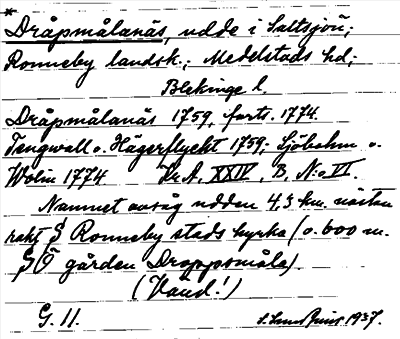 *
Dråpmålanäs, udde i Saltsjön;
Ronneby landsk.; Medelstads hd;
Blekinge l.
Dråpmålanäs 1759, forts. 1774.
Tengwall o. Hägerflycht 1759; Sjöbohm o.
Wolin 1774 Kr.A. XXIV, B, N:o VI.
Namnet avsåg udden 4,5 km. nästan
rakt S Ronneby stads kyrka (o. 600 m.
SÖ gården Droppsmåla).
(Vånd!)
G. 11. 1937.